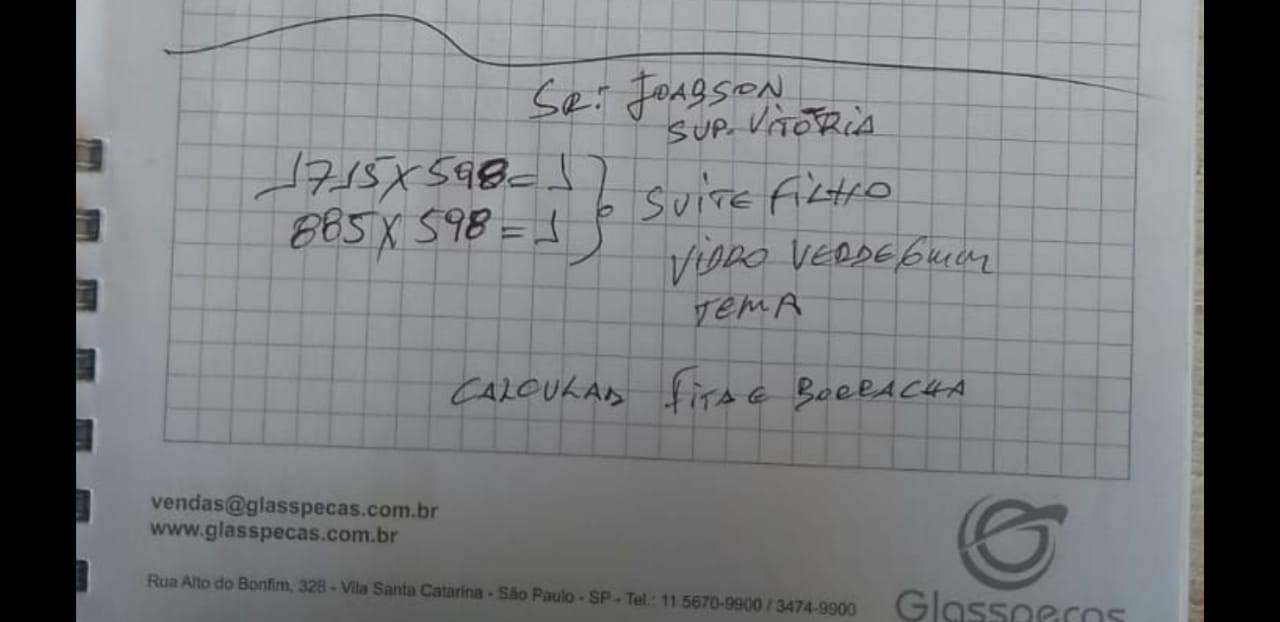 SR: JOABSON
SUP. VITÓRIA
1715 X 598 = 1
885 X 598 = 1
SUITE FILHO
VIDRO VERDE 6mm
TEMP
CALCULAR FITA E BORRACHA
vendas@glasspecas.com.br
www.glasspecas.com.br
Rua Alto do Bonfim, 328 - Vila Santa Catarina - São Paulo - SP - Tel.: 11 5670-9900 / 3474-9900
Glasspeças